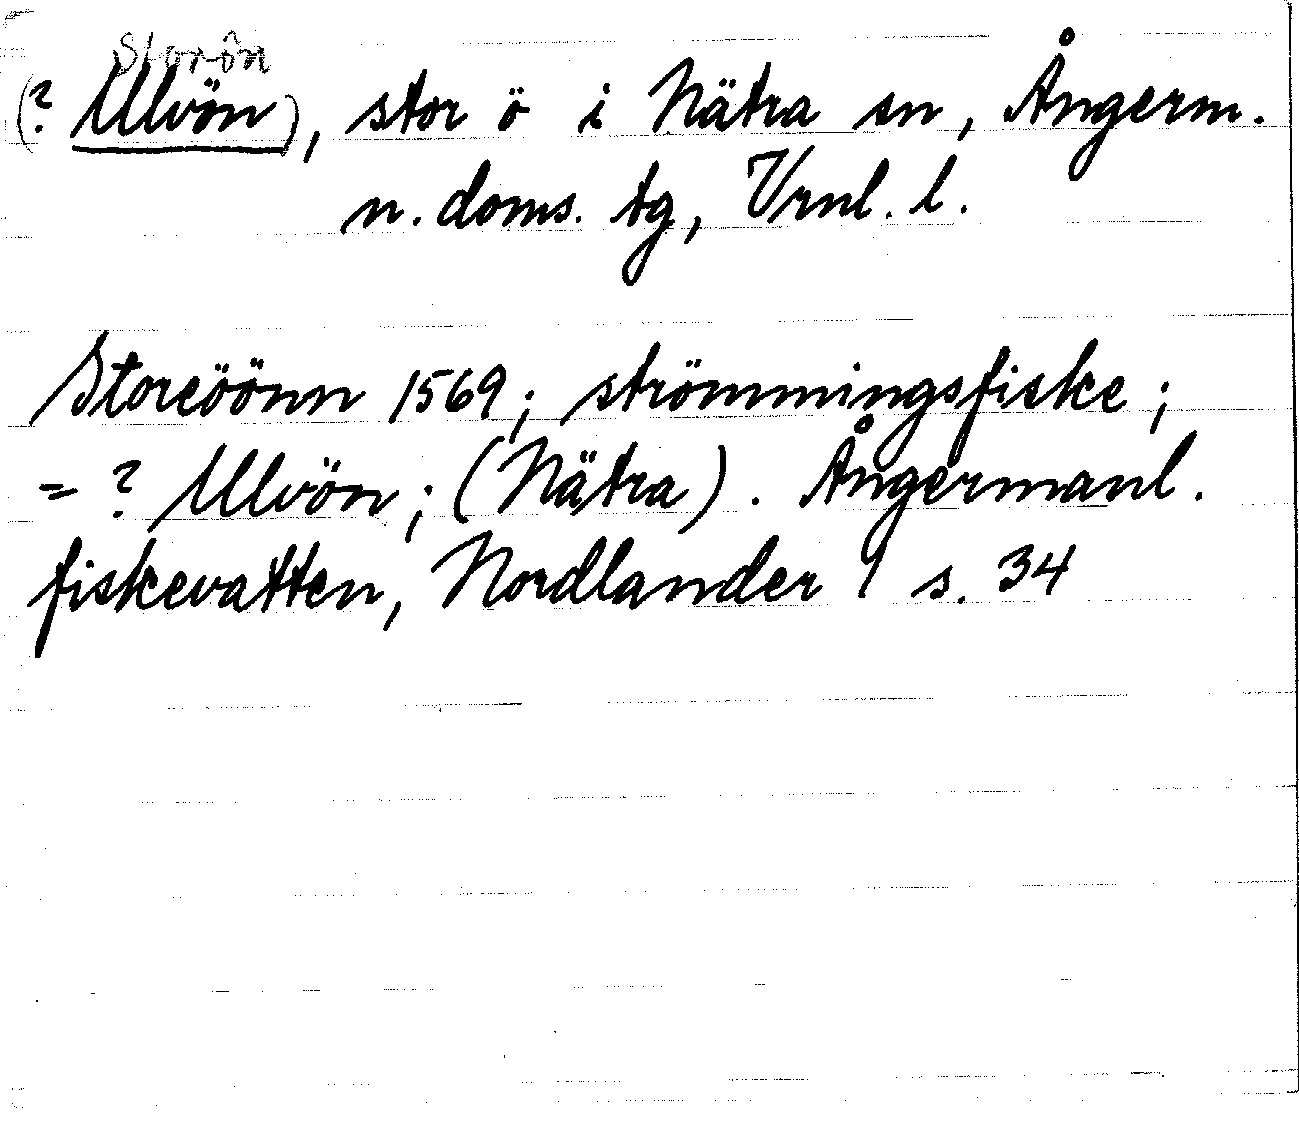 Storön
(? Ulvön), stor ö i Nätra sn, Ångerm.
n. doms. tg, Vrnl. l.
Storeöönn 1569; strömmingsfiske;
= ? Ulvön; (Nätra). Ångermanl.
fiskevatten, Nordlander 1 s. 34